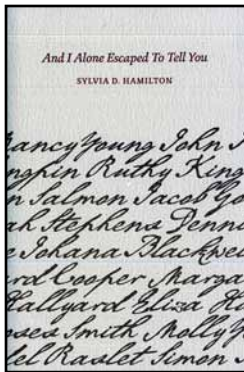 And I Alone Escaped To Tell You
SYLVIA D. HAMILTON
Nancy Young John
Kingfin Ruthy King
Salmon Jacob Go
Stephens Denni
Johana Blackwel
Cooper Marga
Hallyard Eliza H
Moses Smith Molly
Raslet Simon